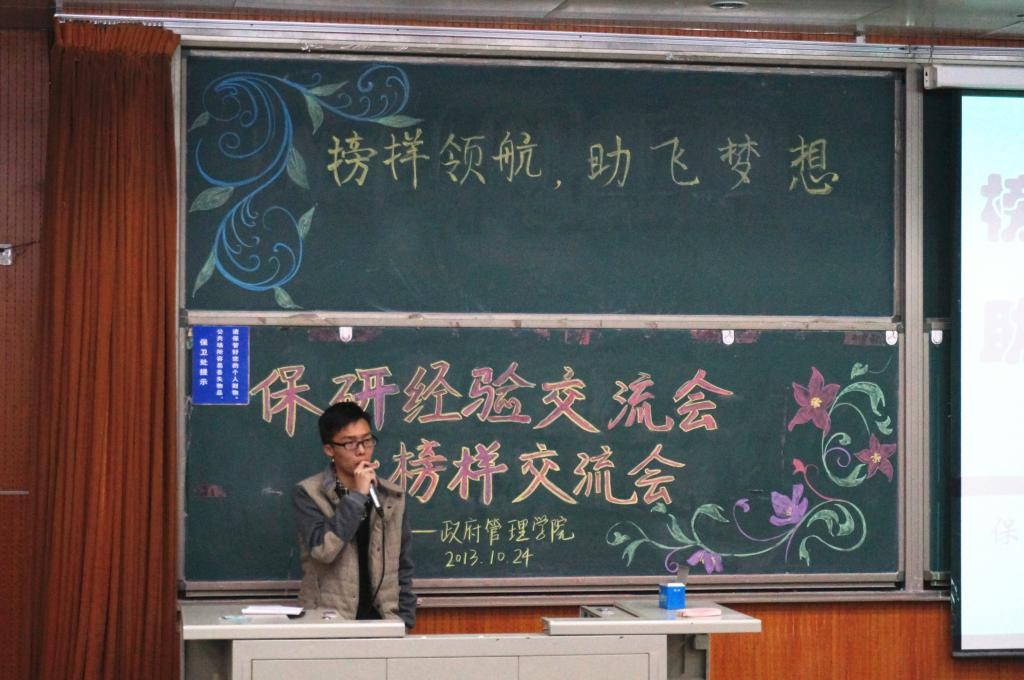 榜样领航,助飞梦想
请保管好您的个人财物。
公共场所容易丢失物品,
保卫处提示
保研经验交流会
榜样交流会
——政府管理学院
2013.10.24
榜
助
保